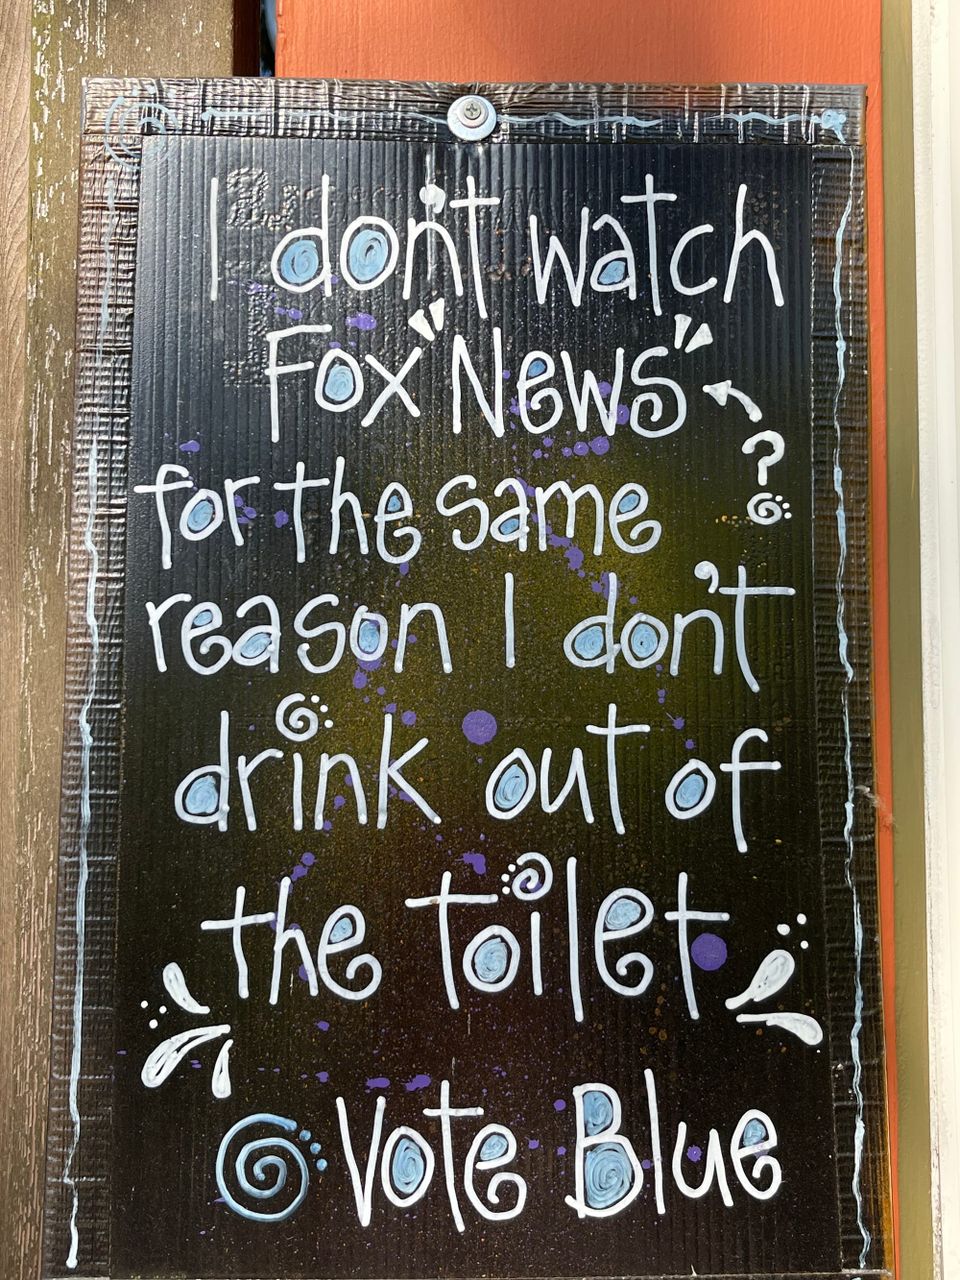 I don't watch
Fox "News"
?
for the same
reason I don't
drink out of
the toilet
Vote Blue